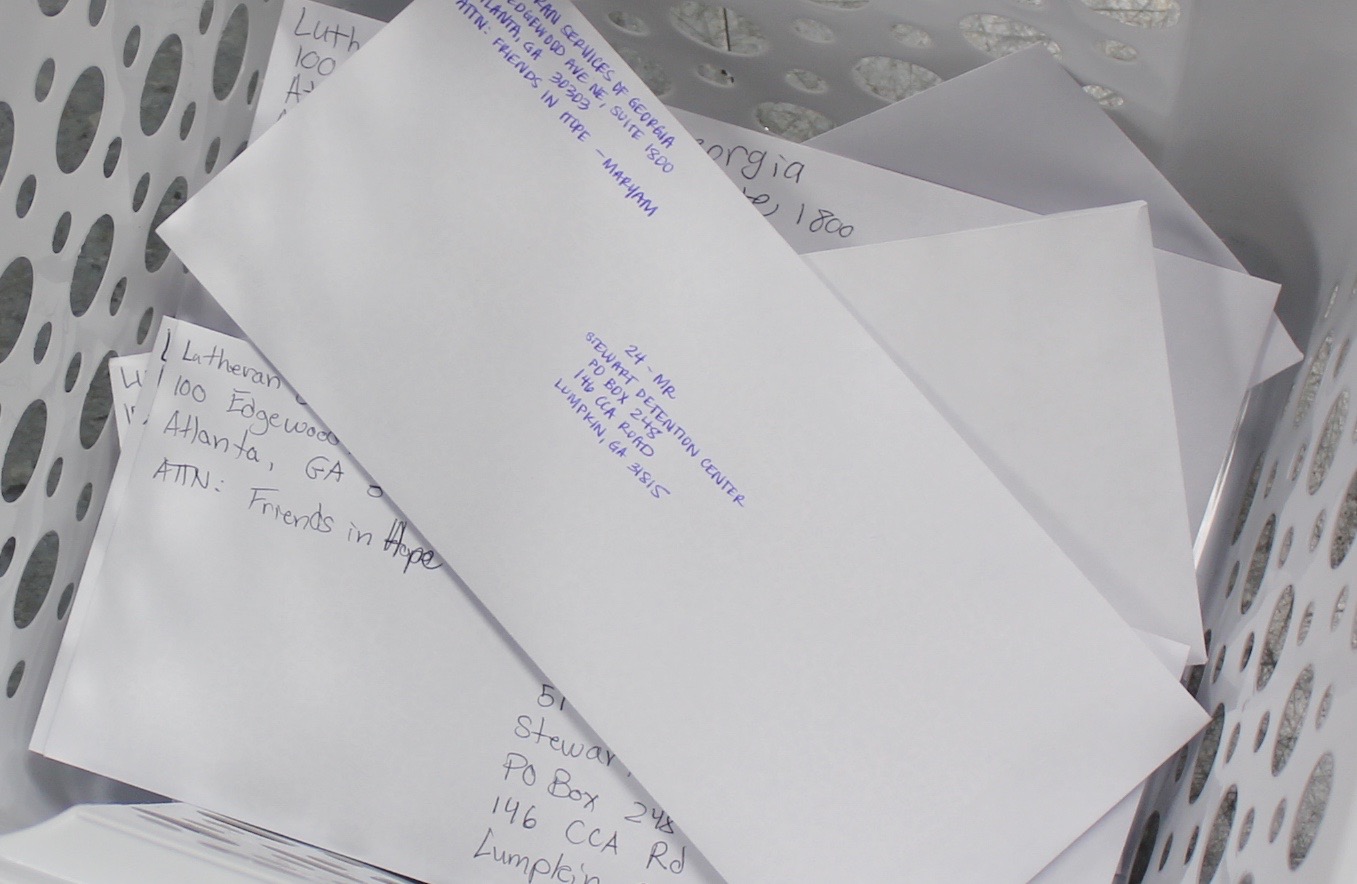 Luth
100
RAN SERVICES OF GEORGIA
EDGEWOOD AVE NE, SUITE 1800
LANTA, GA 30303
ATTN: FRIENDS IN HOPE - MARYAM
orgia
te, 1800
24 - MR
STEWART DETENTION CENTER
PO BOX 248
146 CCA ROAD
LUMPKIN, GA 31815
Lutheran
100 Edgewood
Atlanta, GA
ATTN: Friends in Hope
51
Stewar
PO Box 248
146 CCA Rd
Lumpkin